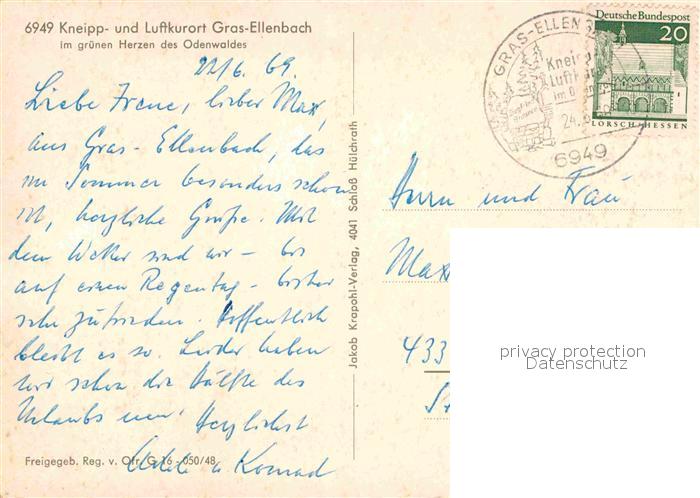 6949 Kneipp- und Luftkurort Gras-Ellenbach
im grünen Herzen des Odenwaldes
22/6. 69.
Liebe Irene, lieber Max,
aus Gras-Ellenbach, das
im Sommer besonders schön
ist, herzliche Grüße. Mit
dem Wetter sind wir – bis
auf einen Regentag – bisher
sehr zufrieden. Hoffentlich
bleibt es so. Leider haben
wir schon die Hälfte des
Urlaubs um. Herzlichst
u Konrad
Freigegeb. Reg. v. Ofr. G 16 - 050/48
Jakob Krapohl-Verlag, 4041 Schloß Hülchrath
GRAS-ELLEN
Kneipp
Luft
im O
24.
6949
Deutsche Bundespost
20
LORSCH/HESSEN
Herrn und Frau
Max
433
privacy protection
Datenschutz